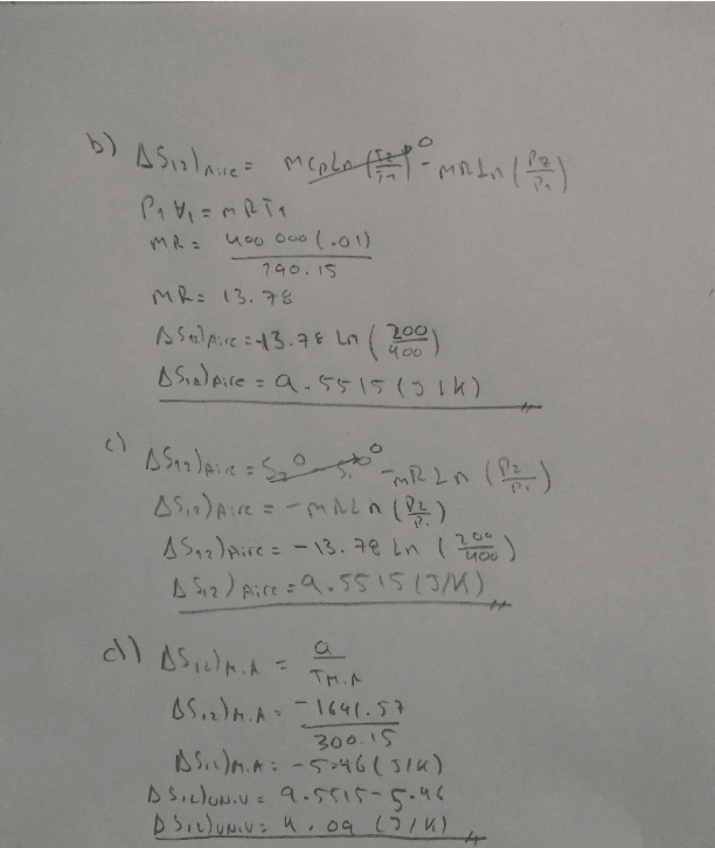 b) ΔS12)Aire = mcpLn (T2/T1) 0 - mRLn (P2/P1)
P1 V1 = mRT1
MR = 400 000 (.01) / 290.15
MR = 13.78
ΔS12)Aire = -13.78 Ln (200/400)
ΔS12)Aire = 9.5515 (J/K)
c) ΔS12)Aire = S2° - S1° 0 - mRLn (P2/P1)
ΔS12)Aire = - mRLn (P2/P1)
ΔS12)Aire = - 13.78 Ln (200/400)
ΔS12)Aire = 9.5515 (J/K)
d) ΔS12)M.A = Q / TM.A
ΔS12)M.A = -1641.57 / 300.15
ΔS12)M.A = -5.46 (J/K)
ΔS12)UNIV = 9.5515 - 5.46
ΔS12)UNIV = 4.09 (J/K)